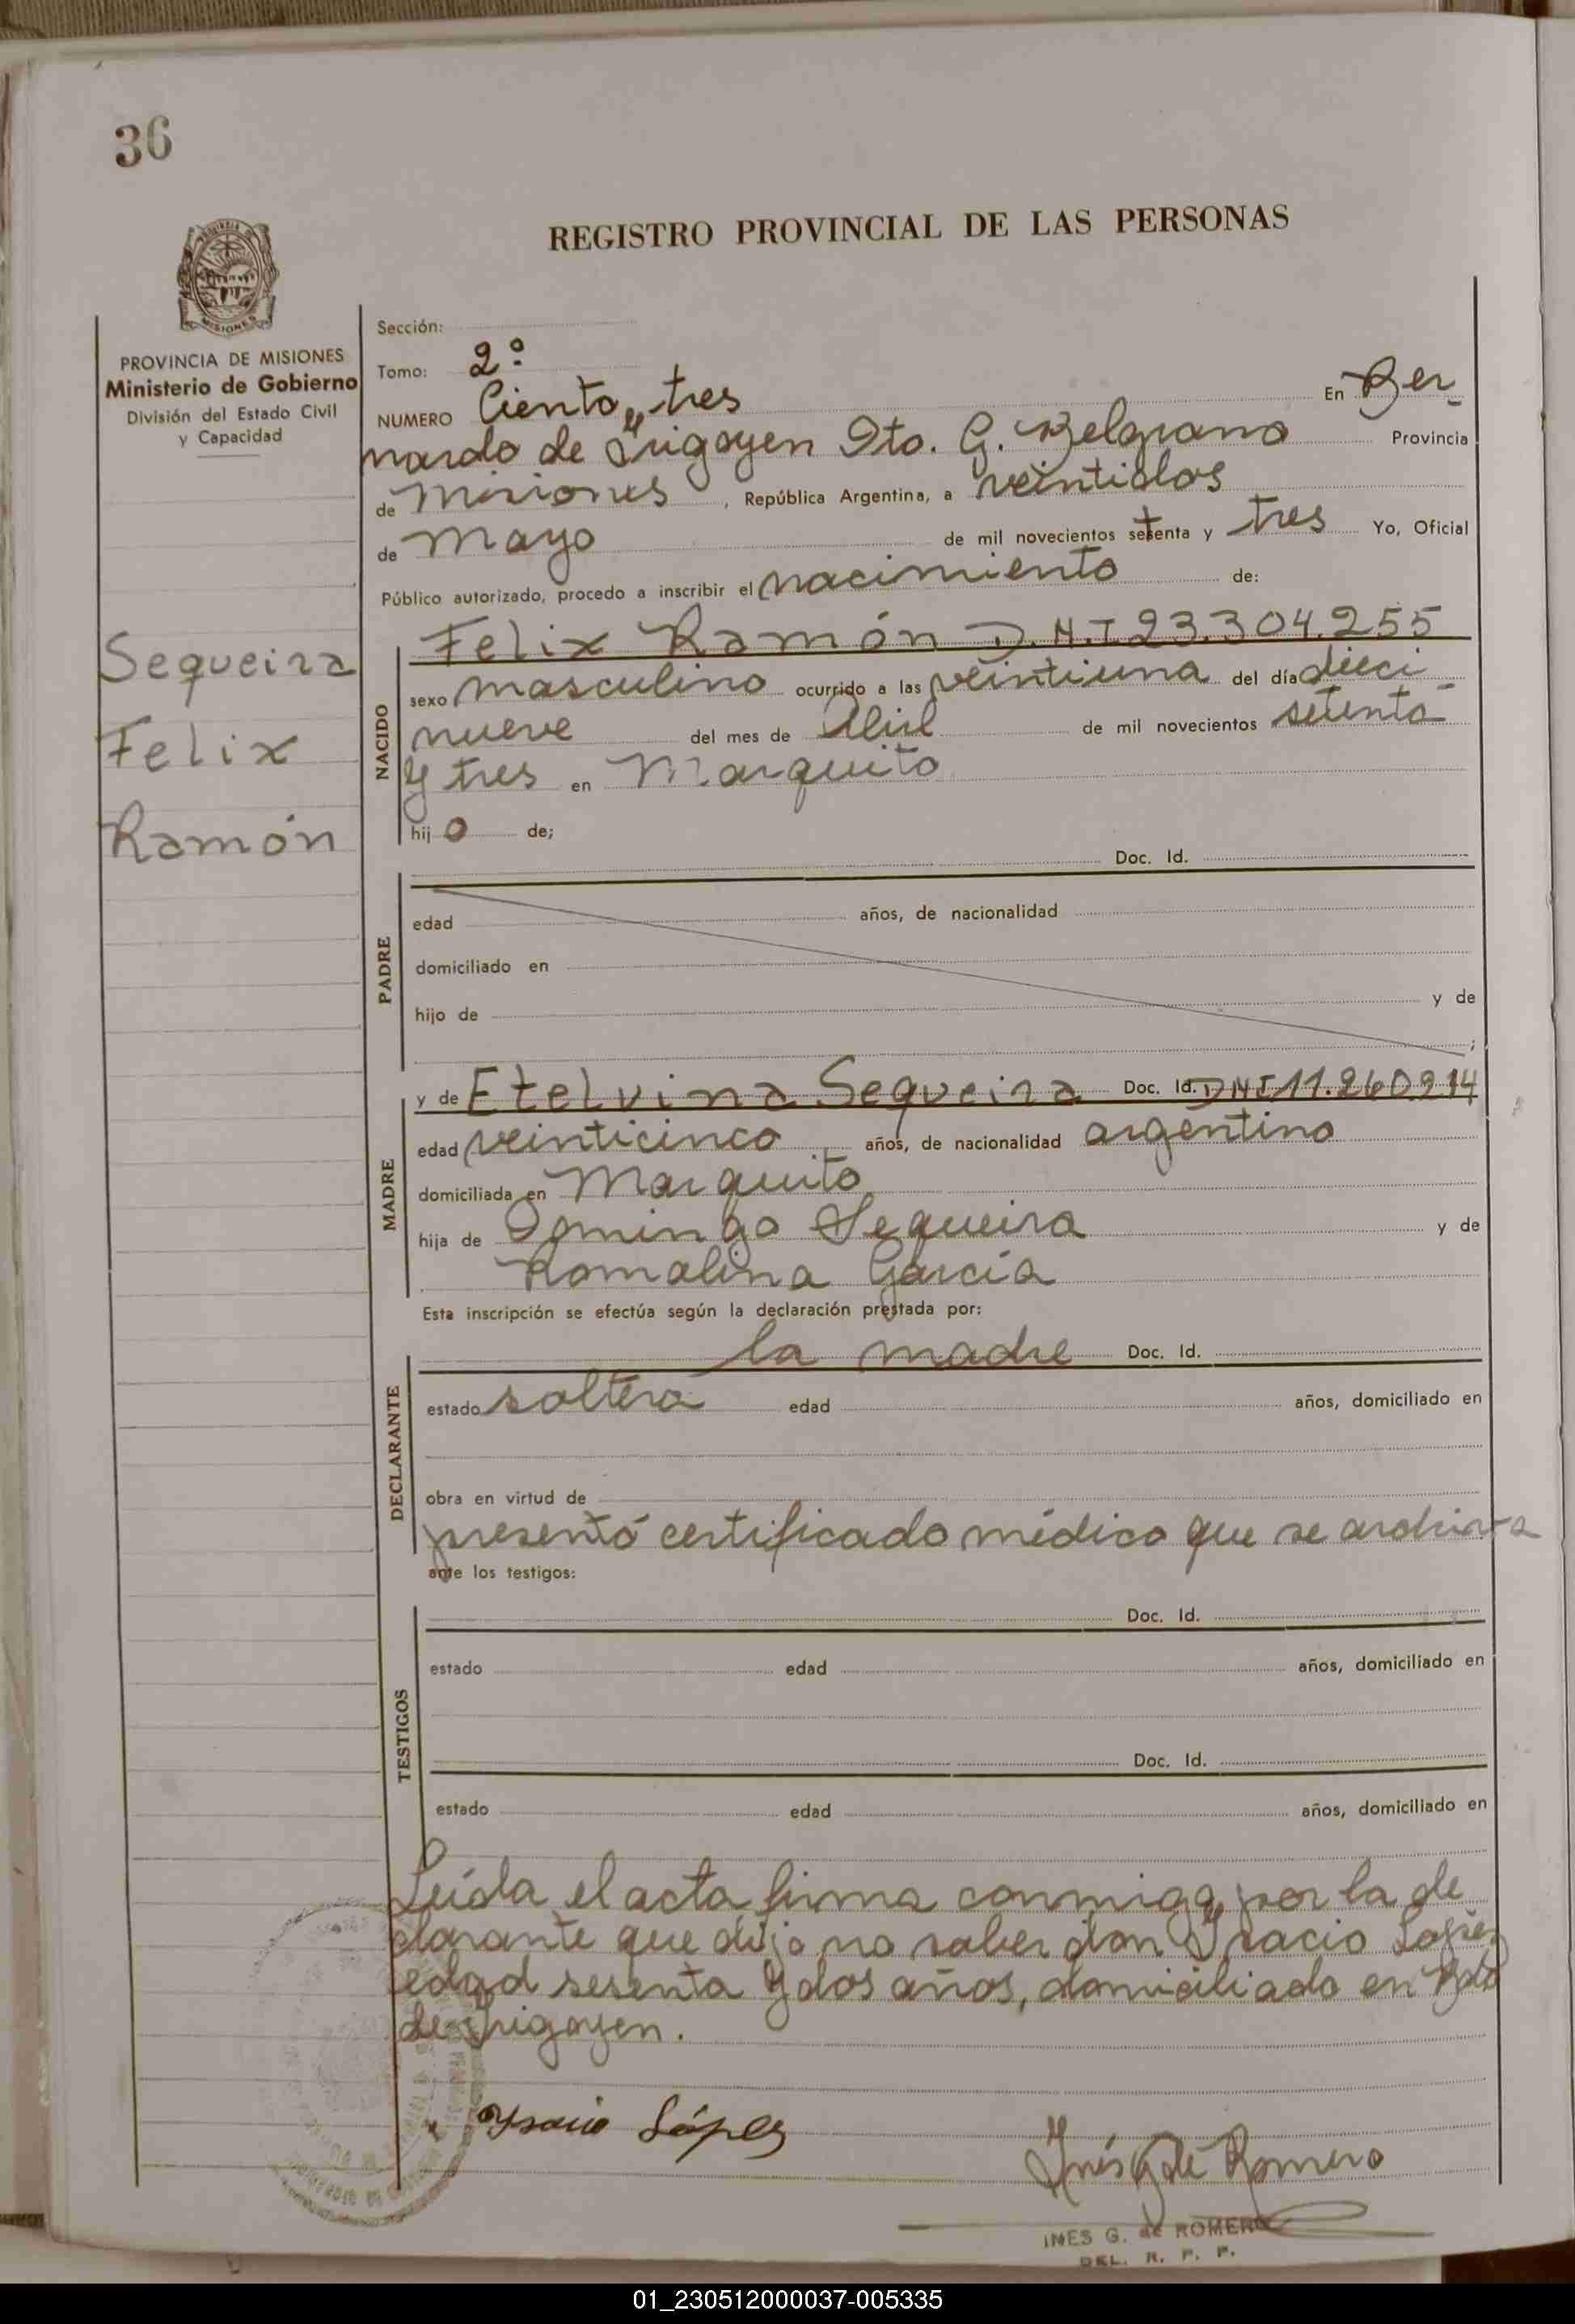 36
REGISTRO PROVINCIAL DE LAS PERSONAS
MISIONES
PROVINCIA DE MISIONES
Ministerio de Gobierno
División del Estado Civil
y Capacidad
Sequeira
Felix
Ramón
Sección:
Tomo: 2º
NUMERO Ciento tres En Ber
nardo de Irigoyen Dto. G. Belgrano Provincia
de Misiones, República Argentina, a veintidos
de Mayo de mil novecientos setenta y tres Yo, Oficial
Público autorizado, procedo a inscribir el nacimiento de:
NACIDO
Felix Ramón D.N.I 23.304.255
sexo masculino ocurrido a las veintiuna del día dieci
nueve del mes de Abril de mil novecientos setenta
y tres en Marquito
hijo de;
PADRE
Doc. Id.
edad años, de nacionalidad
domiciliado en
hijo de y de
;
MADRE
y de Etelvina Sequeira Doc. Id. DNI 11.260.214
edad veinticinco años, de nacionalidad argentina
domiciliada en Marquito
hija de Domingo Sequeira y de
Romalina García
Esta inscripción se efectúa según la declaración prestada por:
DECLARANTE
la madre Doc. Id.
estado soltera edad años, domiciliado en
obra en virtud de
presentó certificado médico que se archiva
ante los testigos:
TESTIGOS
Doc. Id.
estado edad años, domiciliado en
Doc. Id.
estado edad años, domiciliado en
Leída el acta firma conmigo, por la de
clarante que dijo no saber don López
edad sesenta y dos años, domiciliado en Bdo
de Irigoyen.
López
Inés G de Romero
INES G. de ROMERO
DEL. R. P. P.
01_230512000037-005335